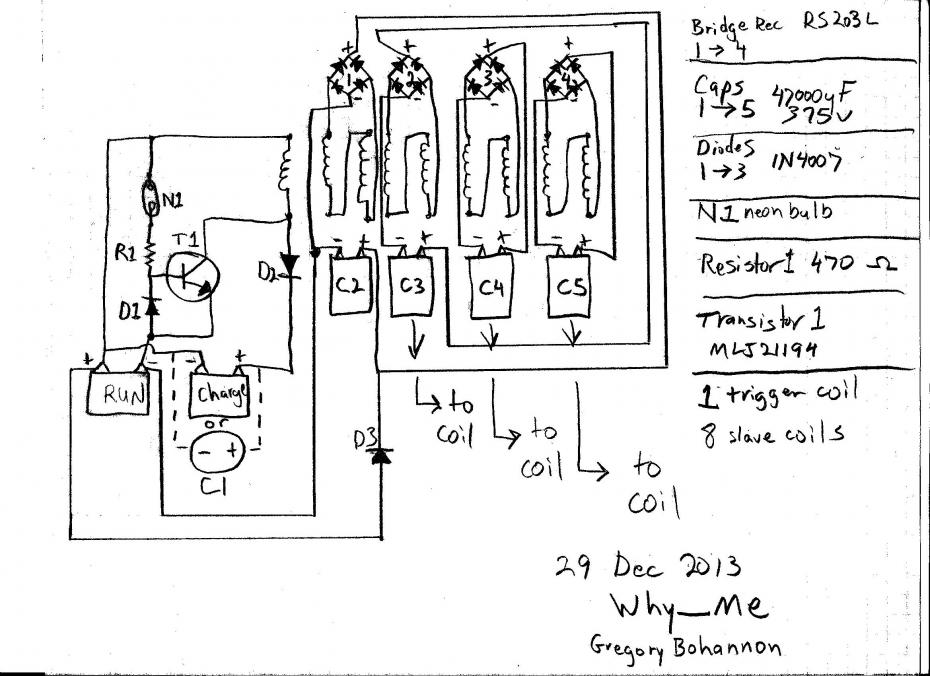 Bridge Rec RS203L
1 → 4
Caps 47000uF
1 → 5 375v
Diodes
1 → 3 1N4007
N1 neon bulb
Resistor 1 470 Ω
Transistor 1
MLJ21194
1 trigger coil
8 slave coils
+ + + +
1 2 3 4
- - - -
N1
R1 T1
D2
D1
- + - + - + - +
C2 C3 C4 C5
+ - - +
RUN Charge
or
- - + -
C1
D3
→ to
coil
→ to
coil
→ to
coil
29 Dec 2013
Why_Me
Gregory Bohannon